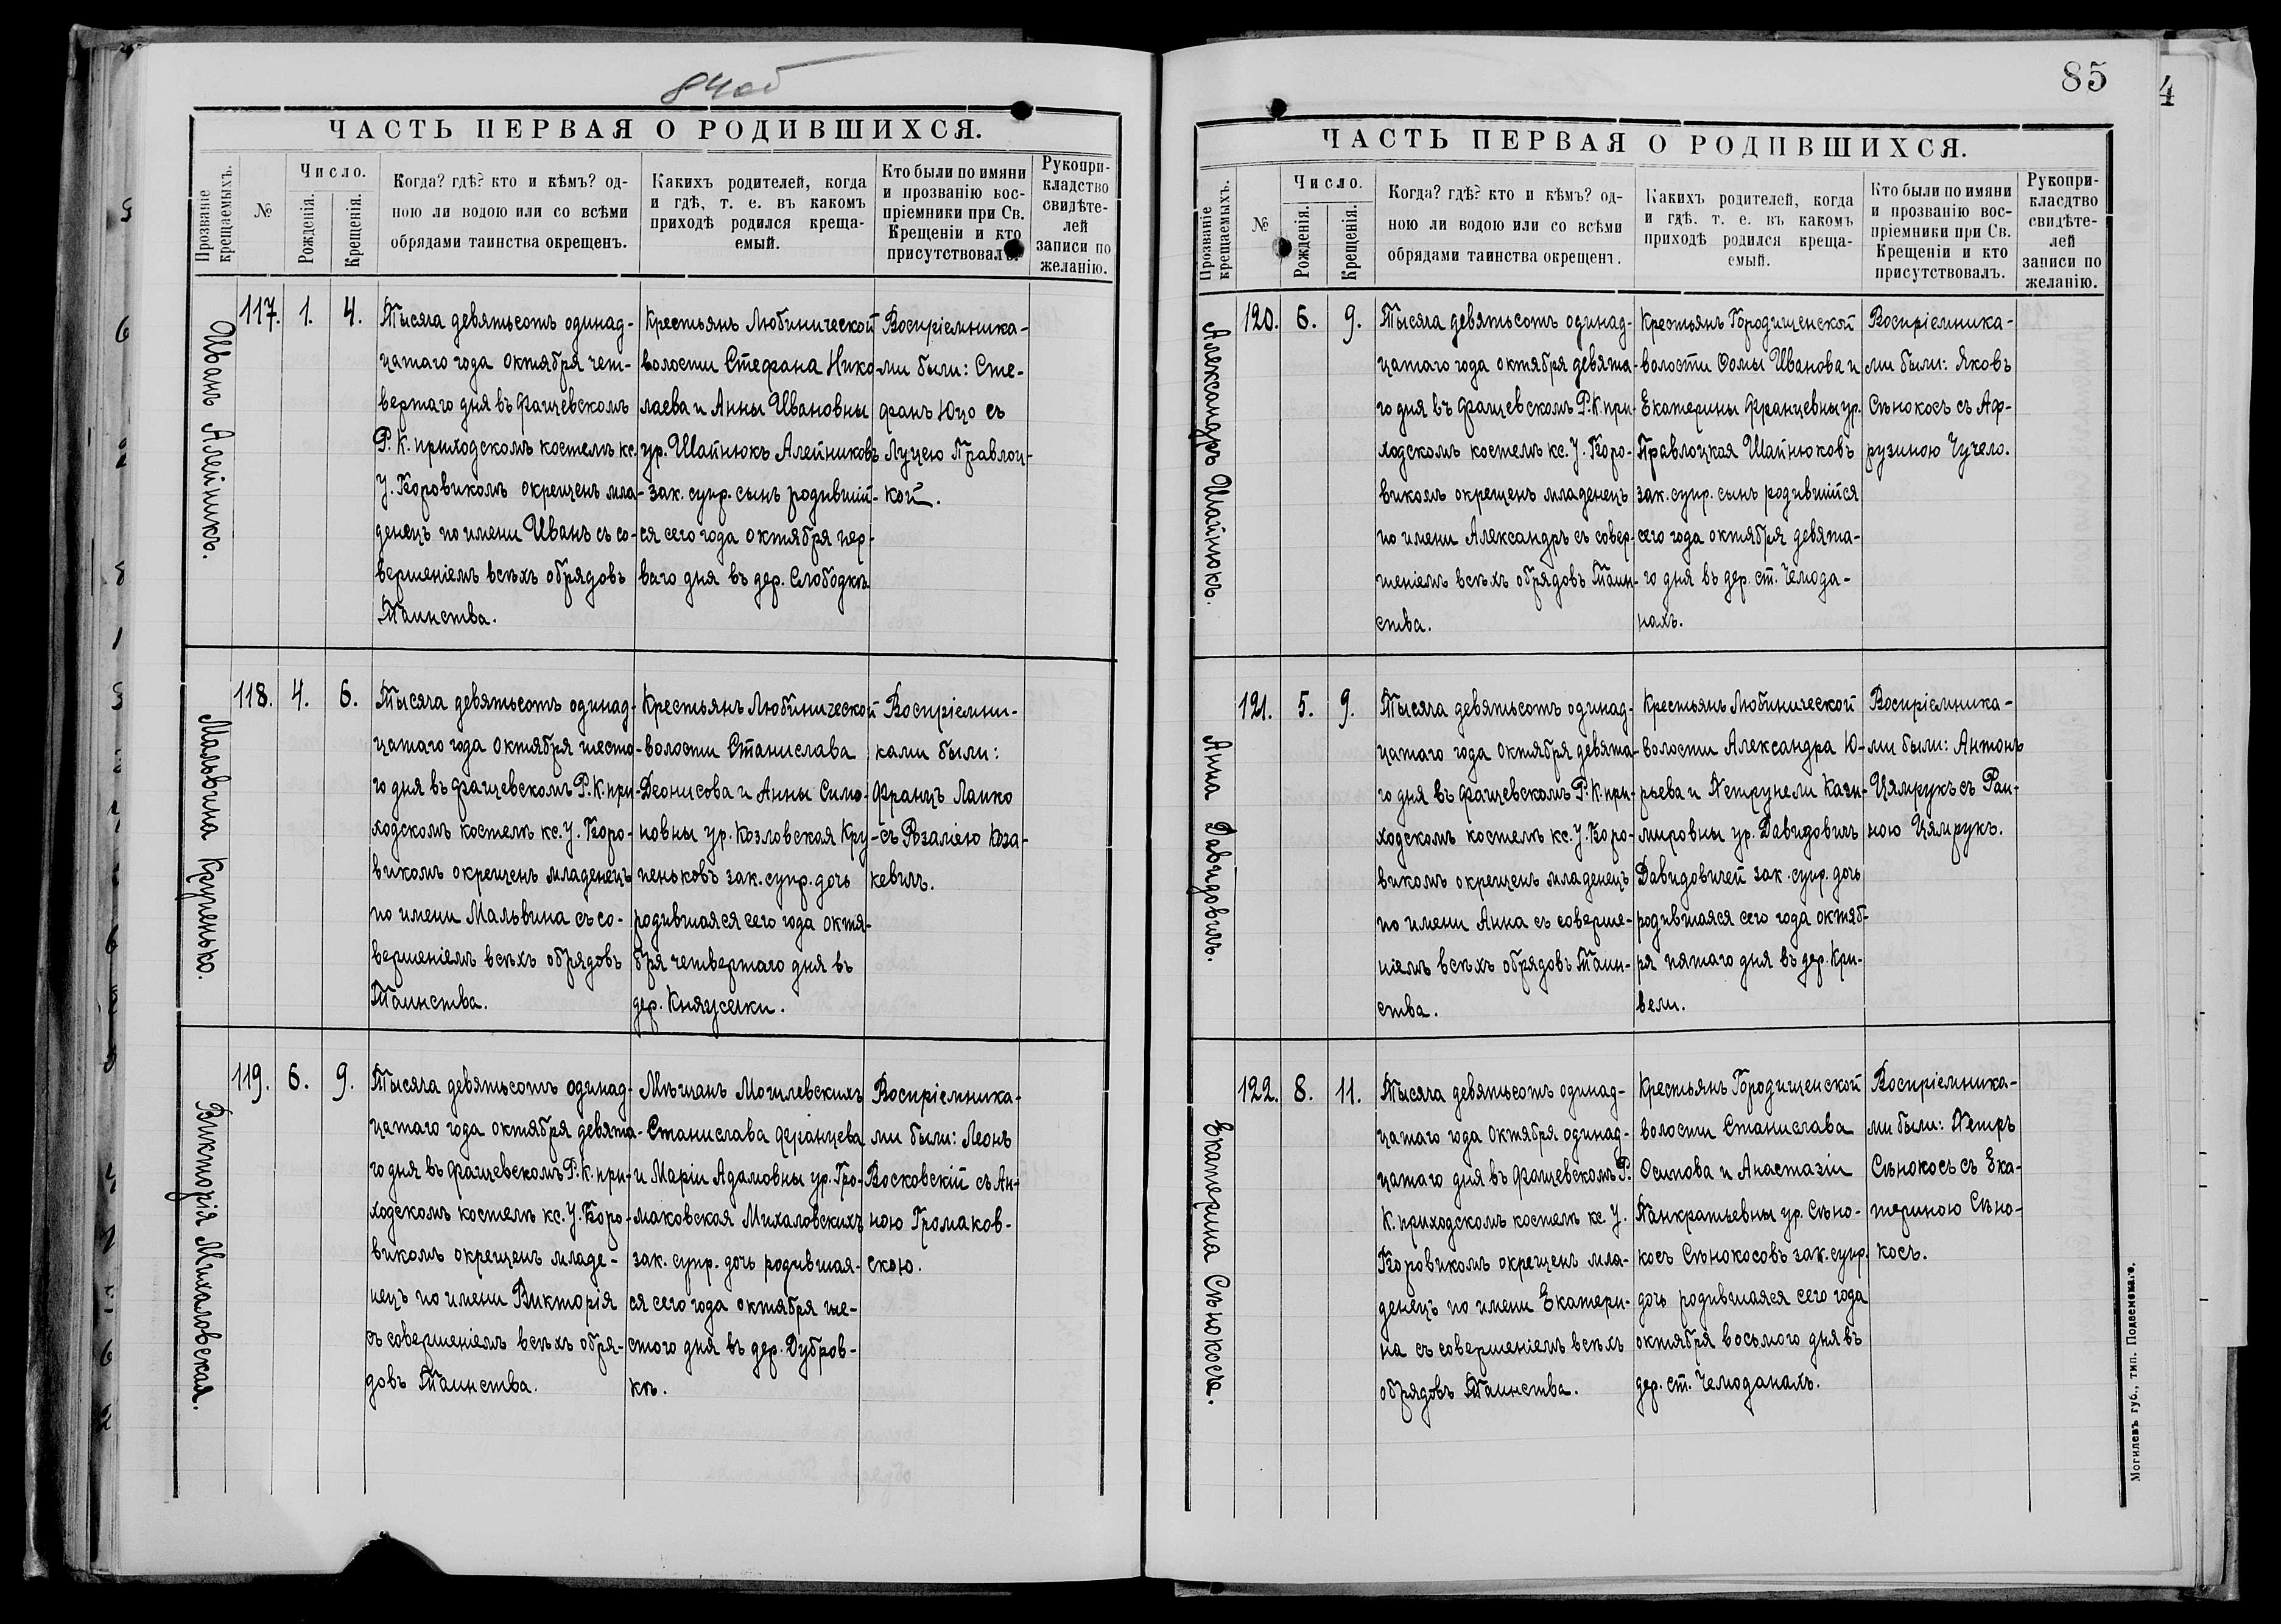 84об
ЧАСТЬ ПЕРВАЯ О РОДИВШИХСЯ.
Прозваніе крещаемыхъ.
№
Число.
Рожденія.
Крещенія.
Когда? гдѣ? кто и кѣмъ? од-
ною ли водою или со всѣми
обрядами таинства окрещенъ.
Какихъ родителей, когда
и гдѣ, т. е. въ какомъ
приходѣ родился креща-
емый.
Кто были по имяни
и прозванію вос-
пріемники при Св.
Крещеніи и кто
присутствовалъ.
Рукопри-
кладство
свидѣте-
лей
записи по
желанію.
Иванъ Алейникъ.
117.
1.
4.
Тысяча девятьсотъ одинад-
цатаго года октября чет-
вертаго дня въ Фащевскомъ
Р. К. приходскомъ костелѣ кс.
У. Боровикомъ окрещенъ мла-
денецъ по имени Иванъ съ со-
вершеніемъ всѣхъ обрядовъ
Таинства.
Крестьянъ Любиничской
волости Стефана Нико-
лаева и Анны Ивановны
ур. Шайнюкъ Алейниковъ
зак. супр. сынъ родившій-
ся сего года октября пер-
ваго дня въ дер. Слободкѣ
Воспріемника-
ми были: Сте-
фанъ Юцо съ
Луцею Правлоц-
кой.
Мальвина Крупенько.
118.
4.
6.
Тысяча девятьсотъ одинад-
цатаго года октября шесто-
го дня въ Фащевскомъ Р. К. при-
ходскомъ костелѣ кс. У. Боро-
викомъ окрещенъ младенецъ
по имени Мальвина съ со-
вершеніемъ всѣхъ обрядовъ
Таинства.
Крестьянъ Любиничской
волости Станислава
Деонисова и Анны Симо-
новны ур. Козловская Кру-
пеньковъ зак. супр. дочь
родившаяся сего года октя-
бря четвертаго дня въ
дер. Княусѣки.
Воспріемни-
ками были:
Францъ Лапко
съ Розаліею Коза-
кевичъ.
Викторія Михаловская.
119.
6.
9.
Тысяча девятьсотъ одинад-
цатаго года октября девята-
го дня въ Фащевскомъ Р. К. при-
ходскомъ костелѣ кс. У. Боро-
викомъ окрещенъ младе-
нецъ по имени Викторія
съ совершеніемъ всѣхъ обря-
довъ Таинства.
Мѣщанъ Могилевскихъ
Станислава Францева
и Маріи Адамовны ур. Гро-
маковская Михаловскихъ
зак. супр. дочь родившая-
ся сего года октября ше-
стого дня въ дер. Дубров-
кѣ.
Воспріемника-
ми были: Леонъ
Восковскій съ Ан-
ною Громаков-
скою.
85
4
ЧАСТЬ ПЕРВАЯ О РОДИВШИХСЯ.
Прозваніе крещаемыхъ.
№
Число.
Рожденія.
Крещенія.
Когда? гдѣ? кто и кѣмъ? од-
ною ли водою или со всѣми
обрядами таинства окрещенъ.
Какихъ родителей, когда
и гдѣ. т. е. въ какомъ
приходѣ родился креща-
емый.
Кто были по имяни
и прозванію вос-
пріемники при Св.
Крещеніи и кто
присутствовалъ.
Рукопри-
класдтво
свидѣте-
лей
записи по
желанію.
Александръ Шайнюкъ.
120.
6.
9.
Тысяча девятьсотъ одинад-
цатаго года октября девята-
го дня въ Фащевскомъ Р. К. при-
ходскомъ костелѣ кс. У. Боро-
викомъ окрещенъ младенецъ
по имени Александръ съ совер-
шеніемъ всѣхъ обрядовъ Таин-
ства.
Крестьянъ Городищенской
волости Ѳомы Иванова и
Екатерины Францевны ур.
Правлоцкая Шайнюковъ
зак. супр. сынъ родившійся
сего года октября девята-
го дня въ дер. ст. Чемода-
нахъ.
Воспріемника-
ми были: Яковъ
Сѣнокосъ съ Аф-
рузиною Чучело.
Анна Давидовичъ.
121.
5.
9.
Тысяча девятьсотъ одинад-
цатаго года октября девята-
го дня въ Фащевскомъ Р. К. при-
ходскомъ костелѣ кс. У. Боро-
викомъ окрещенъ младенецъ
по имени Анна съ соверше-
ніемъ всѣхъ обрядовъ Таин-
ства.
Крестьянъ Любиничской
волости Александра Ю-
рьева и Петрунели Кази-
мировны ур. Давидовичъ
Давидовичей зак. супр. дочь
родившаяся сего года октяб-
ря пятаго дня въ дер. Кри-
вели.
Воспріемника-
ми были: Антонъ
Цямрукъ съ Раи-
ною Цямрукъ.
Екатерина Сѣнокосъ.
122.
8.
11.
Тысяча девятьсотъ одинад-
цатаго года октября одинад-
цатаго дня въ Фащевскомъ Р.
К. приходскомъ костелѣ кс. У.
Боровикомъ окрещенъ мла-
денецъ по имени Екатери-
на съ совершеніемъ всѣхъ
обрядовъ Таинства.
Крестьянъ Городищенской
волости Станислава
Осипова и Анастазіи
Панкратьевны ур. Сѣно-
косъ Сѣнокосовъ зак. супр.
дочь родившаяся сего года
октября восьмого дня въ
дер. ст. Чемоданахъ.
Воспріемника-
ми были: Петръ
Сѣнокосъ съ Ека-
териною Сѣно-
косъ.
Могилевъ губ., тип. Подземскаго.